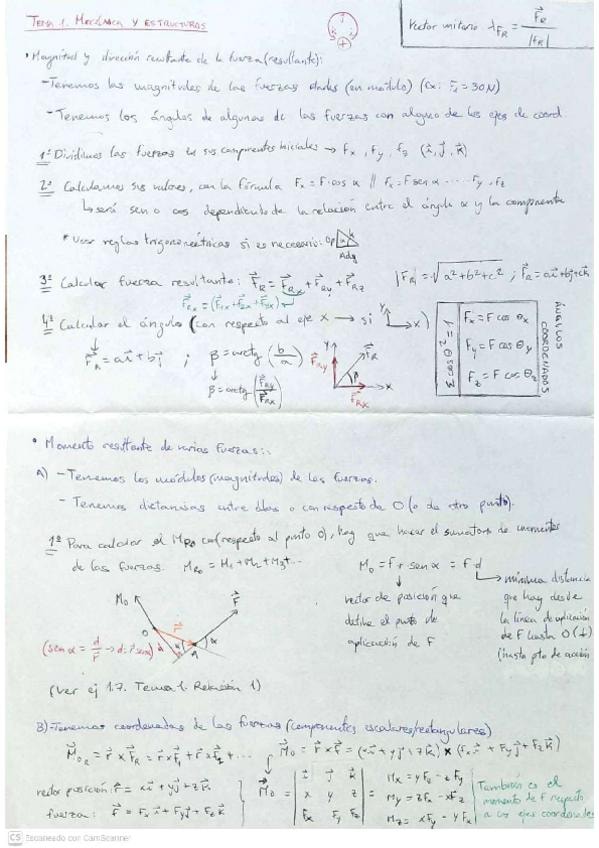 TEMA 1. MECÁNICA Y ESTRUCTURAS
Vector unitario λ_FR = F⃗_R / |F_R|
• Magnitud y dirección resultante de la fuerza (resultante):
- Tenemos las magnitudes de las fuerzas dadas (en módulo) (Ex: F₁ = 30N)
- Tenemos los ángulos de algunas de las fuerzas con alguno de los ejes de coord.
1º Dividimos las fuerzas en sus componentes iniciales → Fx, Fy, Fz (i⃗, j⃗, k⃗)
2º Calculamos sus valores, con la fórmula Fx = F cos α // Fx = F sen α ..... Fy, Fz
↳ será sen o cos dependiendo de la relación entre el ángulo α y la componente
* Usar reglas trigonométricas si es necesario: Op
Adq
3º Calcular fuerza resultante: F⃗_R = F⃗_Rx + F⃗_Ry + F⃗_Rz |F_R| = √a² + b² + c² ; F⃗_R = ai⃗ + bj⃗ + ck⃗
F⃗_Rx = (F⃗1x + F⃗2x + F⃗3x)
4º Calcular el ángulo (con respecto al eje x → si y x)
F⃗_R = ai⃗ + bj⃗ ; β = arctg (b/a)
β = arctg (F⃗_Ry / F⃗_Rx)
y F⃗_Ry F⃗_R β x F⃗_Rx
Σ cos² θ = 1
Fx = F cos θx
Fy = F cos θy
Fz = F cos θz
ÁNGULOS COORDENADOS
• Momento resultante de varias fuerzas:
A) - Tenemos los módulos (magnitudes) de las fuerzas.
- Tenemos distancias entre ellas o con respecto de O (o de otro punto).
1º Para calcular el M_RO con (respecto al punto O), hay que hacer el sumatorio de momentos
de las fuerzas. M_RO = M₁ + M₂ + M₃ + ...
M₀ = F r sen α = F · d
vector de posición que
define el punto de
aplicación de F
mínima distancia
que hay desde
la línea de aplicación
de F hasta O (⊥)
(hasta pto de acción
M₀ F⃗ O r⃗ d α A
(sen α = d/r⃗ → d = r⃗ sen α)
(Ver ej 1.7. Tema 1. Relación 1)
B) - Tenemos coordenadas de las fuerzas (componentes escalares/rectangulares)
M⃗_OR = r⃗ × F⃗_R = r⃗ × F⃗₁ + r⃗ × F⃗₂ + ... M⃗₀ = r⃗ × F⃗ = (xi⃗ + yj⃗ + zk⃗) × (Fxi⃗ + Fyj⃗ + Fzk⃗)
vector posición: r⃗ = xi⃗ + yj⃗ + zk⃗
fuerza: F⃗ = Fx i⃗ + Fy j⃗ + Fz k⃗
M⃗₀ = | i⃗ j⃗ k⃗ | = Mx = yFz - zFy
| x y z | My = zFx - xFz
| Fx Fy Fz | Mz = xFy - yFx
También es el
momento de F respecto
a los ejes coordenados
CS Escaneado con CamScanner